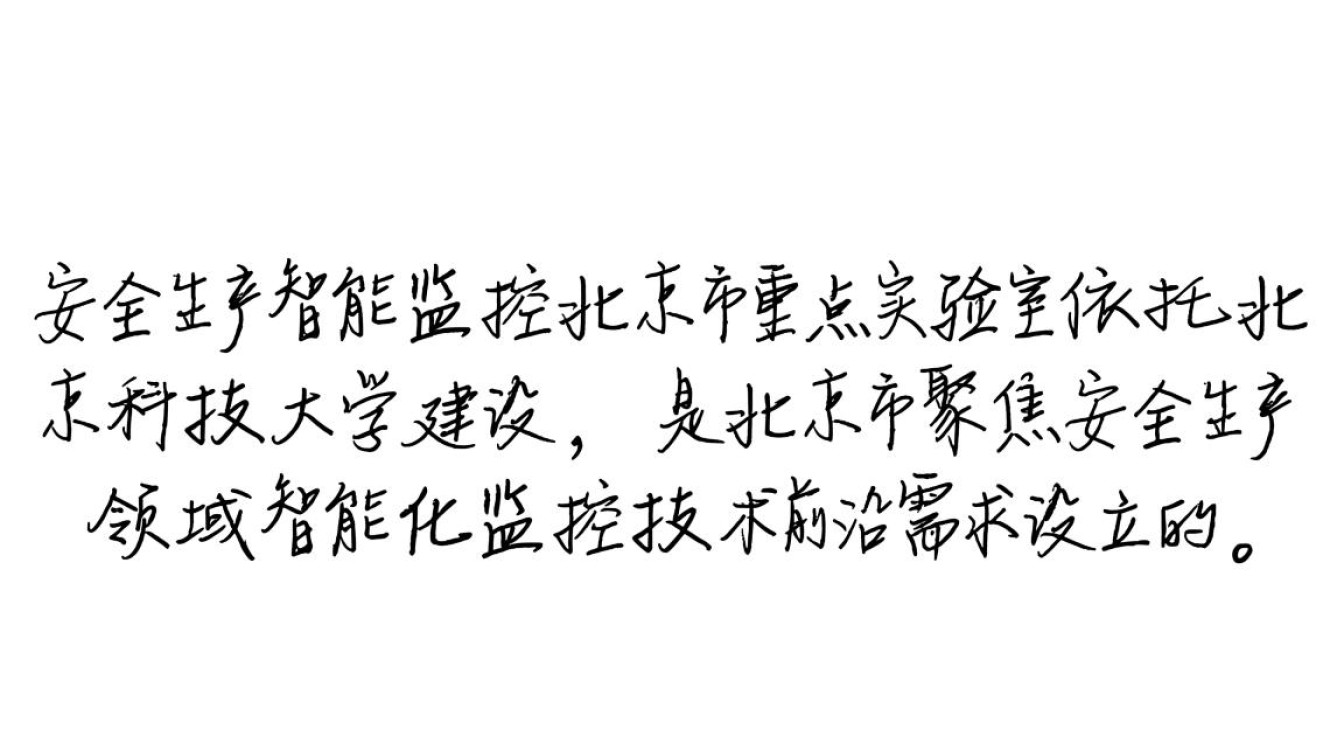 安全生产智能监控北京市重点实验室依托北
京科技大学建设，是北京市聚焦安全生产
领域智能化监控技术前沿需求设立的。